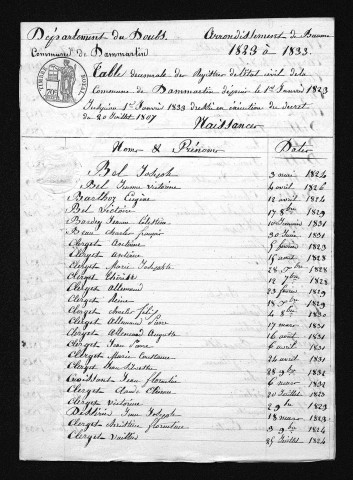 Département du Doubs Arrondissement de Baume
Commune de Dammartin 1823 à 1833.
Table décennale des Registres de l'état civil de la
Commune de Dammartin depuis le 1er Janvier 1823
Jusqu'au 1er Janvier 1833 dressée en exécution du décret
du 20 Juillet 1807
Naissances
Noms & Prénoms Dates
Bel Joseph 3 mai 1824
Bel Jeanne Victoire 4 avril 1826
Barthoz Eugène 12 avril 1824
Bel Victoire 17 8bre 1829
Bardey Jeanne Célestine 10 Janvier 1831
Beau Charles françois 30 Juin 1831
Clerget Antoine 5 février 1823
Clerget Antoine 15 août 1828
Clerget Marie Josephte 28 7bre 1828
Clerget Thérèse 12 7bre 1828
Clerget Allemand 23 février 1829
Clerget Reine 18 7bre 1829
Clerget Charles félix 4 8bre 1830
Clerget Allemand Pierre 17 mars 1831
Clerget Allemand Auguste 16 avril 1831
Clerget Jean Pierre 6 avril 1831
Clerget Marie Constance 24 avril 1831
Clerget 28 9bre 1831
Croissant Jean florentin 6 mars 1831
Clerget Claude Etienne 20 Juillet 1823
Clerget Victorine 2 9bre 1823
Jean Joseph 18 mars 1823
Clerget Christine florentine 3 9bre 1824
Clerget 25 Juillet 1824